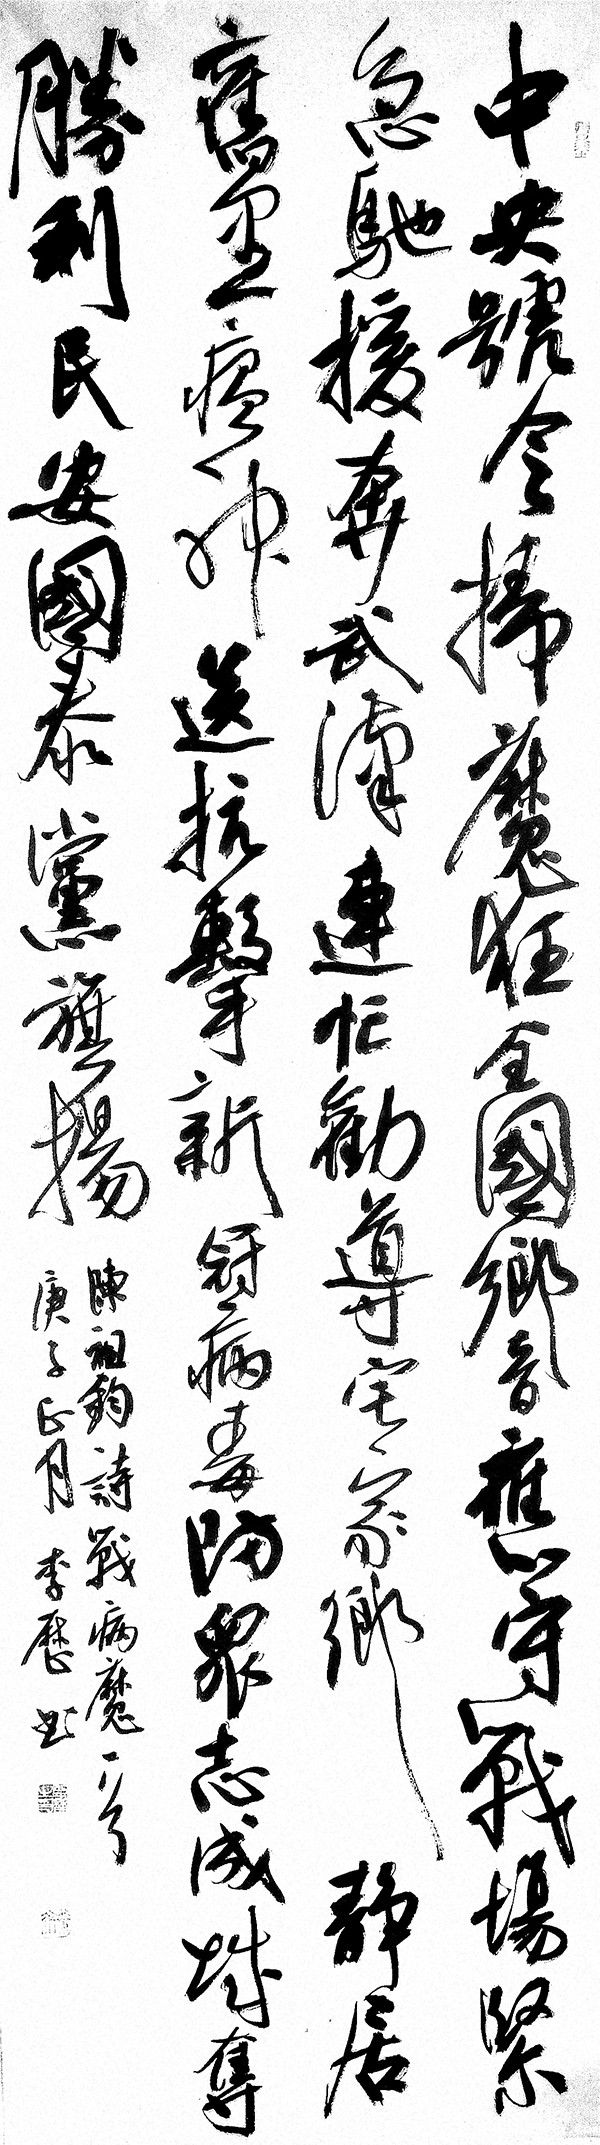 中央號令掃魔狂全國響應守戰場緊
急馳援奔武漢連忙勸導宅家鄉靜居
舊里瘟神送抗擊新冠病毒防眾志成城奪
勝利民安國泰黨旗揚
陳祖鈞詩戰病魔一首
庚子正月 李歷書